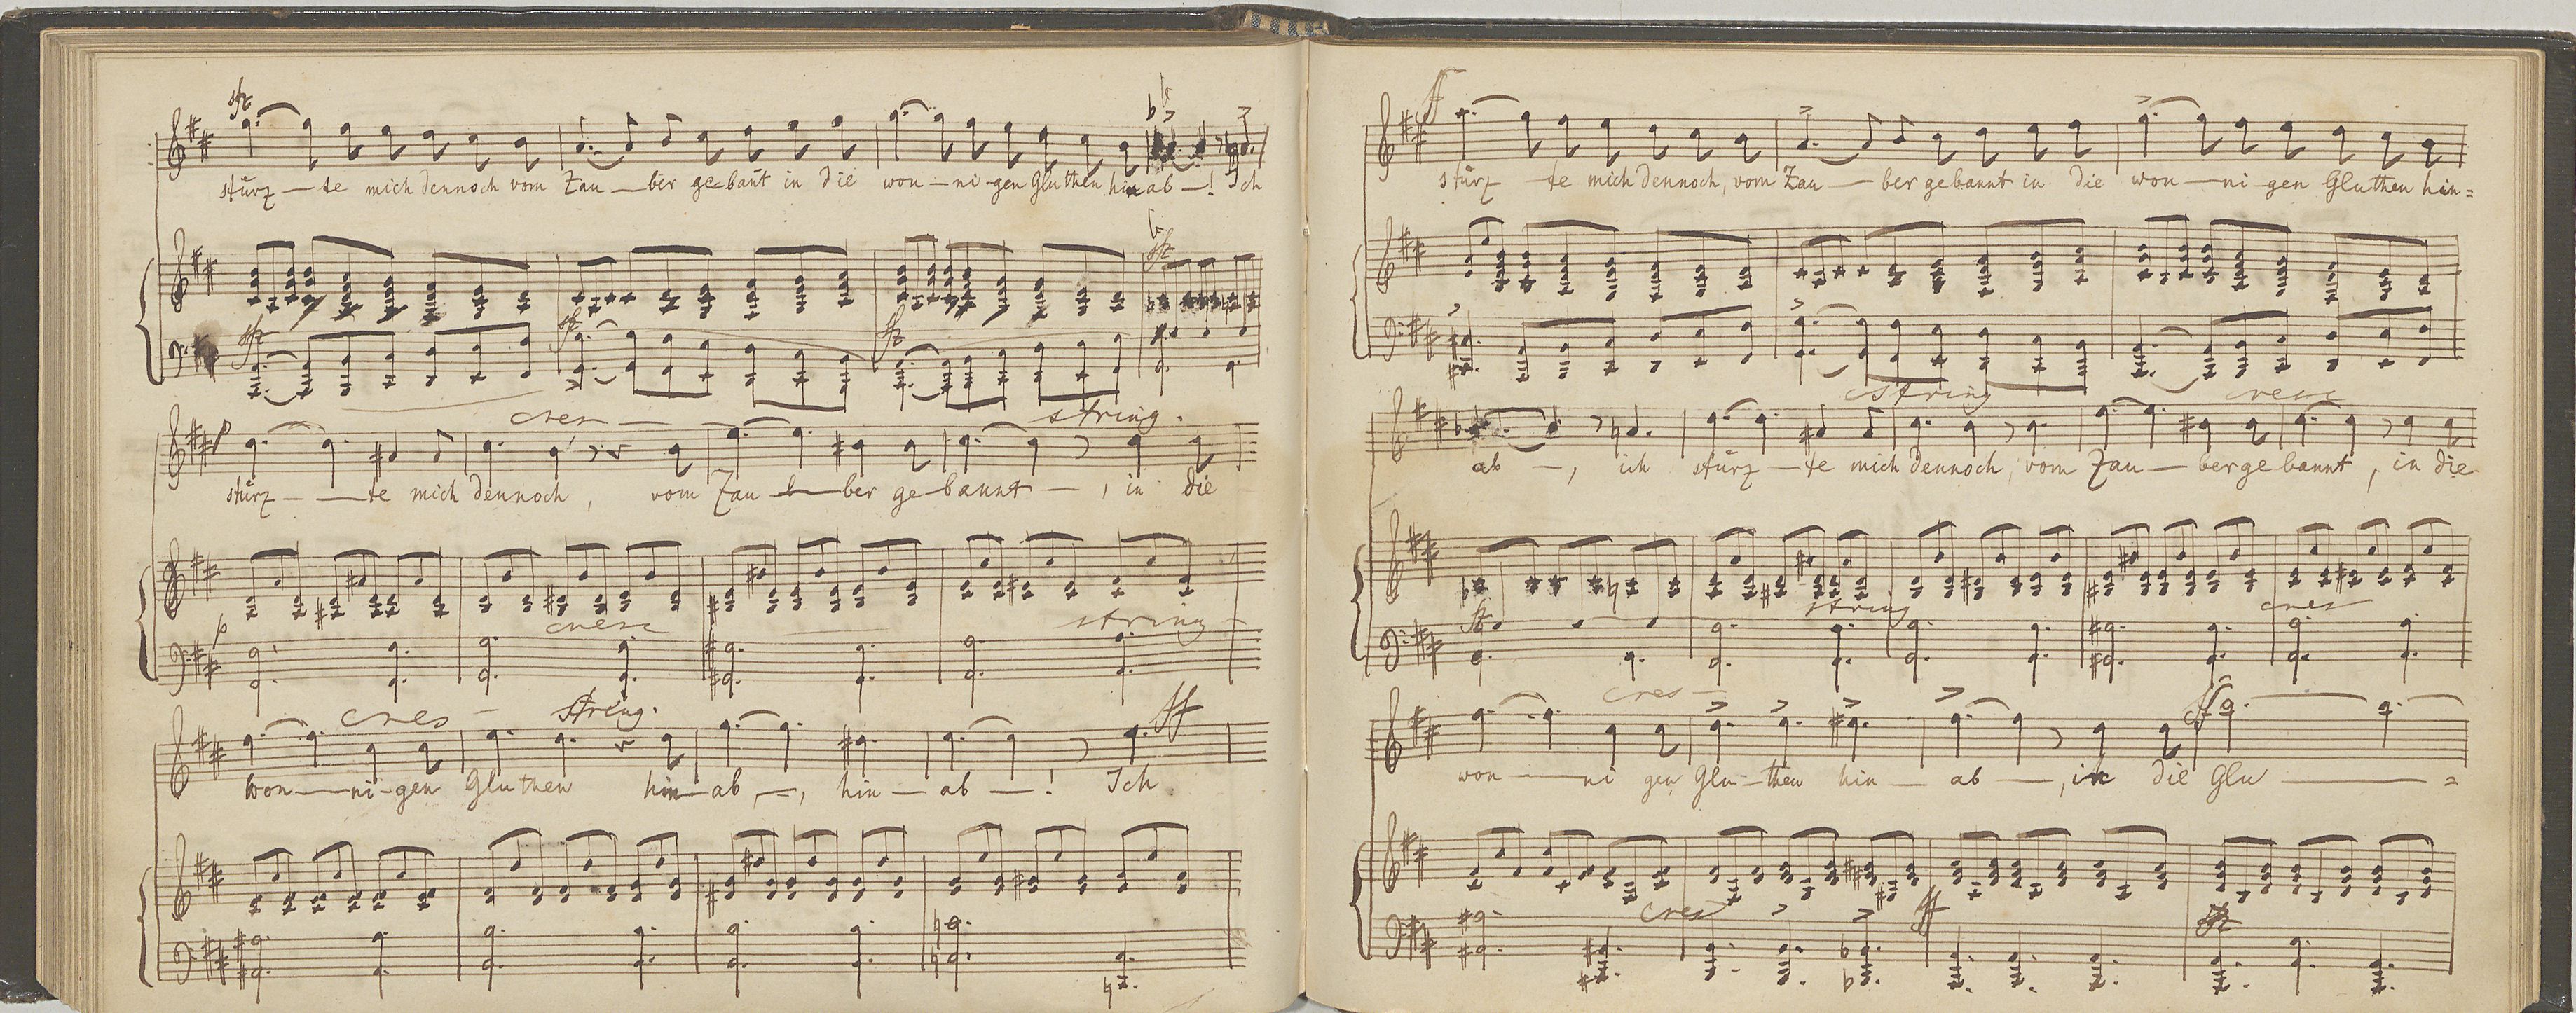 sfz
stürz — te mich dennoch vom Zau — ber ge-bant in die won — ni-gen Gluthen hin ab — ! Ich
sfz
sfz sfz sfz
p cres — string.
stürz — — te mich dennoch, vom Zau — ber ge-bannt —, in die
p cresc string —
cres — string. ff
won — ni-gen Gluthen hin—ab, —, hin — ab — ! Ich
f
stürz — te mich dennoch, vom Zau — ber gebannt in die won — ni-gen Gluthen hin=
string cresc
ab —, ich stürz — te mich dennoch, vom Zau — ber ge bannt, in die
sfz string cres
cres — ff
won — ni gen Glu — then hin — ab —, in die Glu — =
cres ff sfz